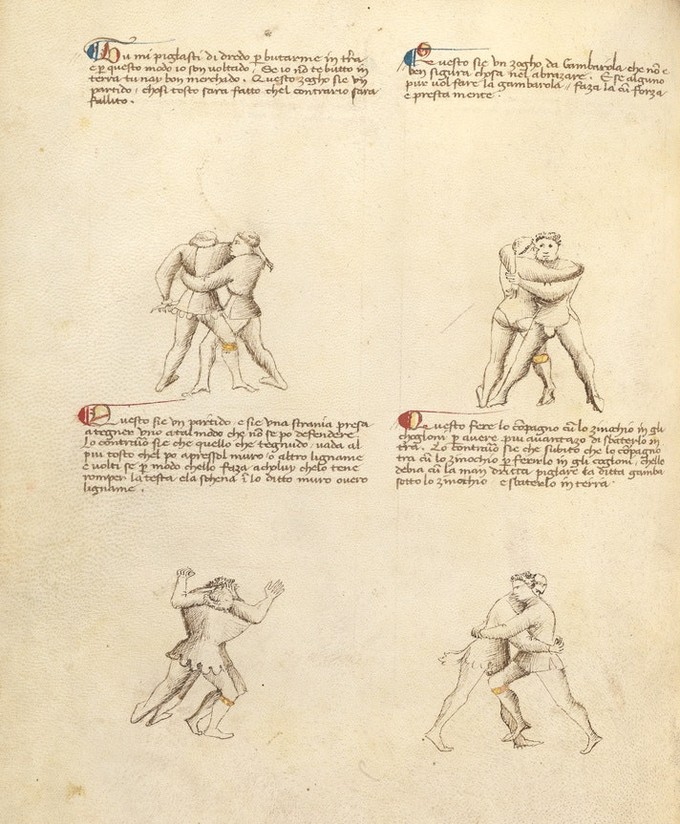 Tu mi piglasti di dredo p butarme in tr̃a
e p questo modo io son voltado. Se io nõ te butto in
terra tu nay bon merchado. Questo zogho sie vn
partido, chosi tosto sara fatto chel contrario sara
fallito.
Questo sie vn zogho da Gambarola che nõ e
ben sigura chosa nel abrazare. E se alguno
pur vol fare la gambarola, faza la cũ forza
e presta mente.
Questo sie vn partido, e sie vna strania presa
a tegner vno a tal modo che nõ se po defendere
Lo contrario sie che quello che tegnudo, vada al
piu tosto chel po apressol muro o altro ligname
e volti se p modo chello faza a choluy chelo tene
romper la testa e la schena ĩ lo ditto muro overo
ligname.
Questo fere lo cõpagno cũ lo zinochio in gli
choglioni p avere piu avantazo di sbaterlo in
tr̃a. Lo contrario sie che subito che lo cõpagno
tra cũ lo zinochio p ferirlo in gli coglioni, chello
debia cũ la man dritta piglare la ditta gamba
sotto lo zinochio e sbaterlo in terra.